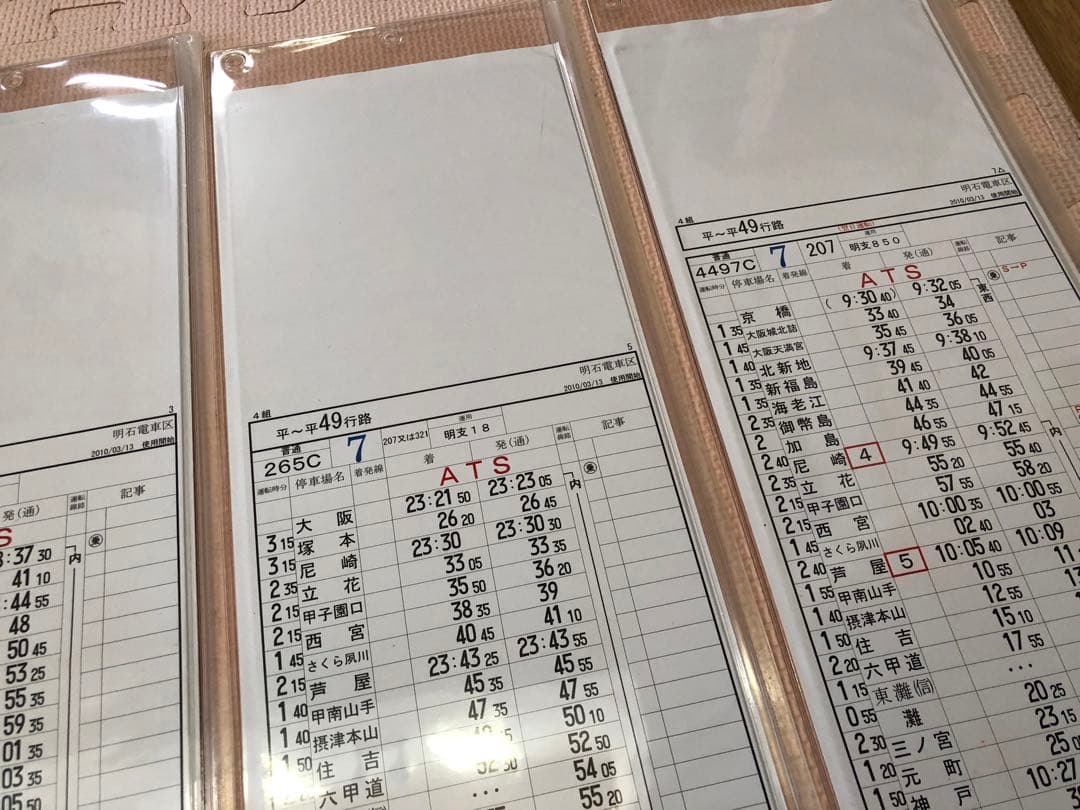 3
明石電車区
2010/03/13 使用開始
発(通) 運転線路 記事
S
:37 30 内 乗
41 10
:44 55
48
50 45
53 25
55 35
59 35
01 35
03 35
05 50
5
4組 明石電車区
2010/03/13 使用開始
平～平49行路
普通 265C 7 207又は321 運用 明支18
運転時分 停車場名 着発線 着 発(通) 運転線路 記事
ATS
大阪 23:21 50 23:23 05 内 乗
3 15 塚本 26 20 26 45
3 15 尼崎 23:30 23:30 30
2 35 立花 33 05 33 35
2 15 甲子園口 35 50 36 20
2 15 西宮 38 35 39
1 45 さくら夙川 40 45 41 10
2 15 芦屋 23:43 25 23:43 55
1 40 甲南山手 45 35 45 55
1 40 摂津本山 47 35 47 55
1 50 住吉 50 10
六甲道 52 30 52 50
... 54 05
55 20
7△
4組 明石電車区
2010/03/13 使用開始
平～平49行路
普通 4497C 7 207 運用 明支850
運転時分 停車場名 着発線 着 発(通) 運転線路 記事
ATS 乗 S→P
京橋 (9:30 40) 9:32 05 東西
1 35 大阪城北詰 33 40 34
1 45 大阪天満宮 35 45 36 05
1 40 北新地 9:37 45 9:38 10
1 35 新福島 39 45 40 05
1 35 海老江 41 40 42
2 35 御幣島 44 35 44 55
2 加島 46 55 47 15
2 40 尼崎 4 9:49 55 9:52 45 内
2 35 立花 55 20 55 40
2 15 甲子園口 57 55 58 20
2 15 西宮 10:00 35 10:00 55
1 45 さくら夙川 02 40 03
2 40 芦屋 5 10:05 40 10:09
1 55 甲南山手 10 55 11
1 40 摂津本山 12 55
1 50 住吉 15 10
2 20 六甲道 17 55
1 15 東灘(信) ...
0 55 灘 20 25
2 30 三ノ宮 23 15
1 20 元町 25
1 50 神戸 10:27